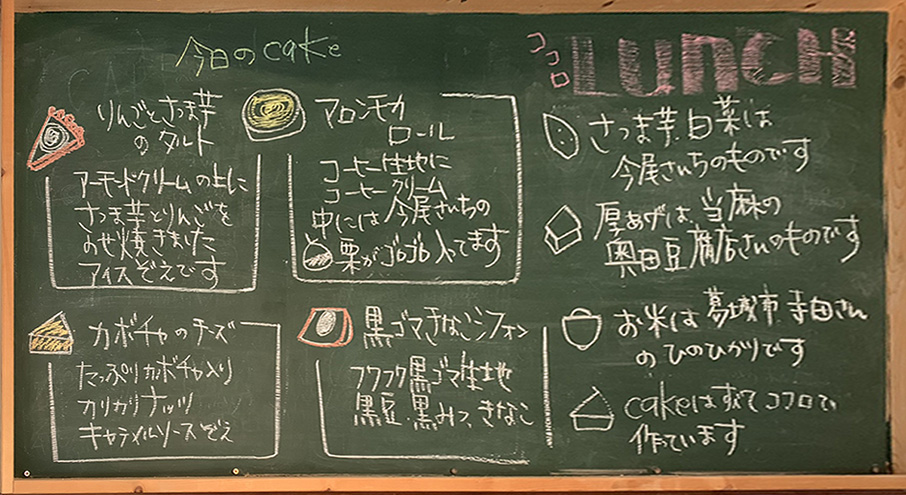 今日のcake
りんごとさつま芋
のタルト
アーモンドクリームの上に
さつま芋とりんごを
のせ焼きました
アイスぞえです
マロンモカ
ロール
コーヒー生地に
コーヒークリーム
中には今尾さんちの
栗がゴロゴロ入ってます
カボチャのチーズ
たっぷりカボチャ入り
カリカリナッツ
キャラメルソースぞえ
黒ゴマきなこシフォン
フワフワ黒ゴマ生地
黒豆、黒みつ、きなこ
ココロ LUNCH
さつま芋、白菜は
今尾さんちのものです
厚あげは、当麻の
奥田豆腐店さんのものです
お米は葛城市 寺田さん
のひのひかりです
cakeはすべてココロで
作っています